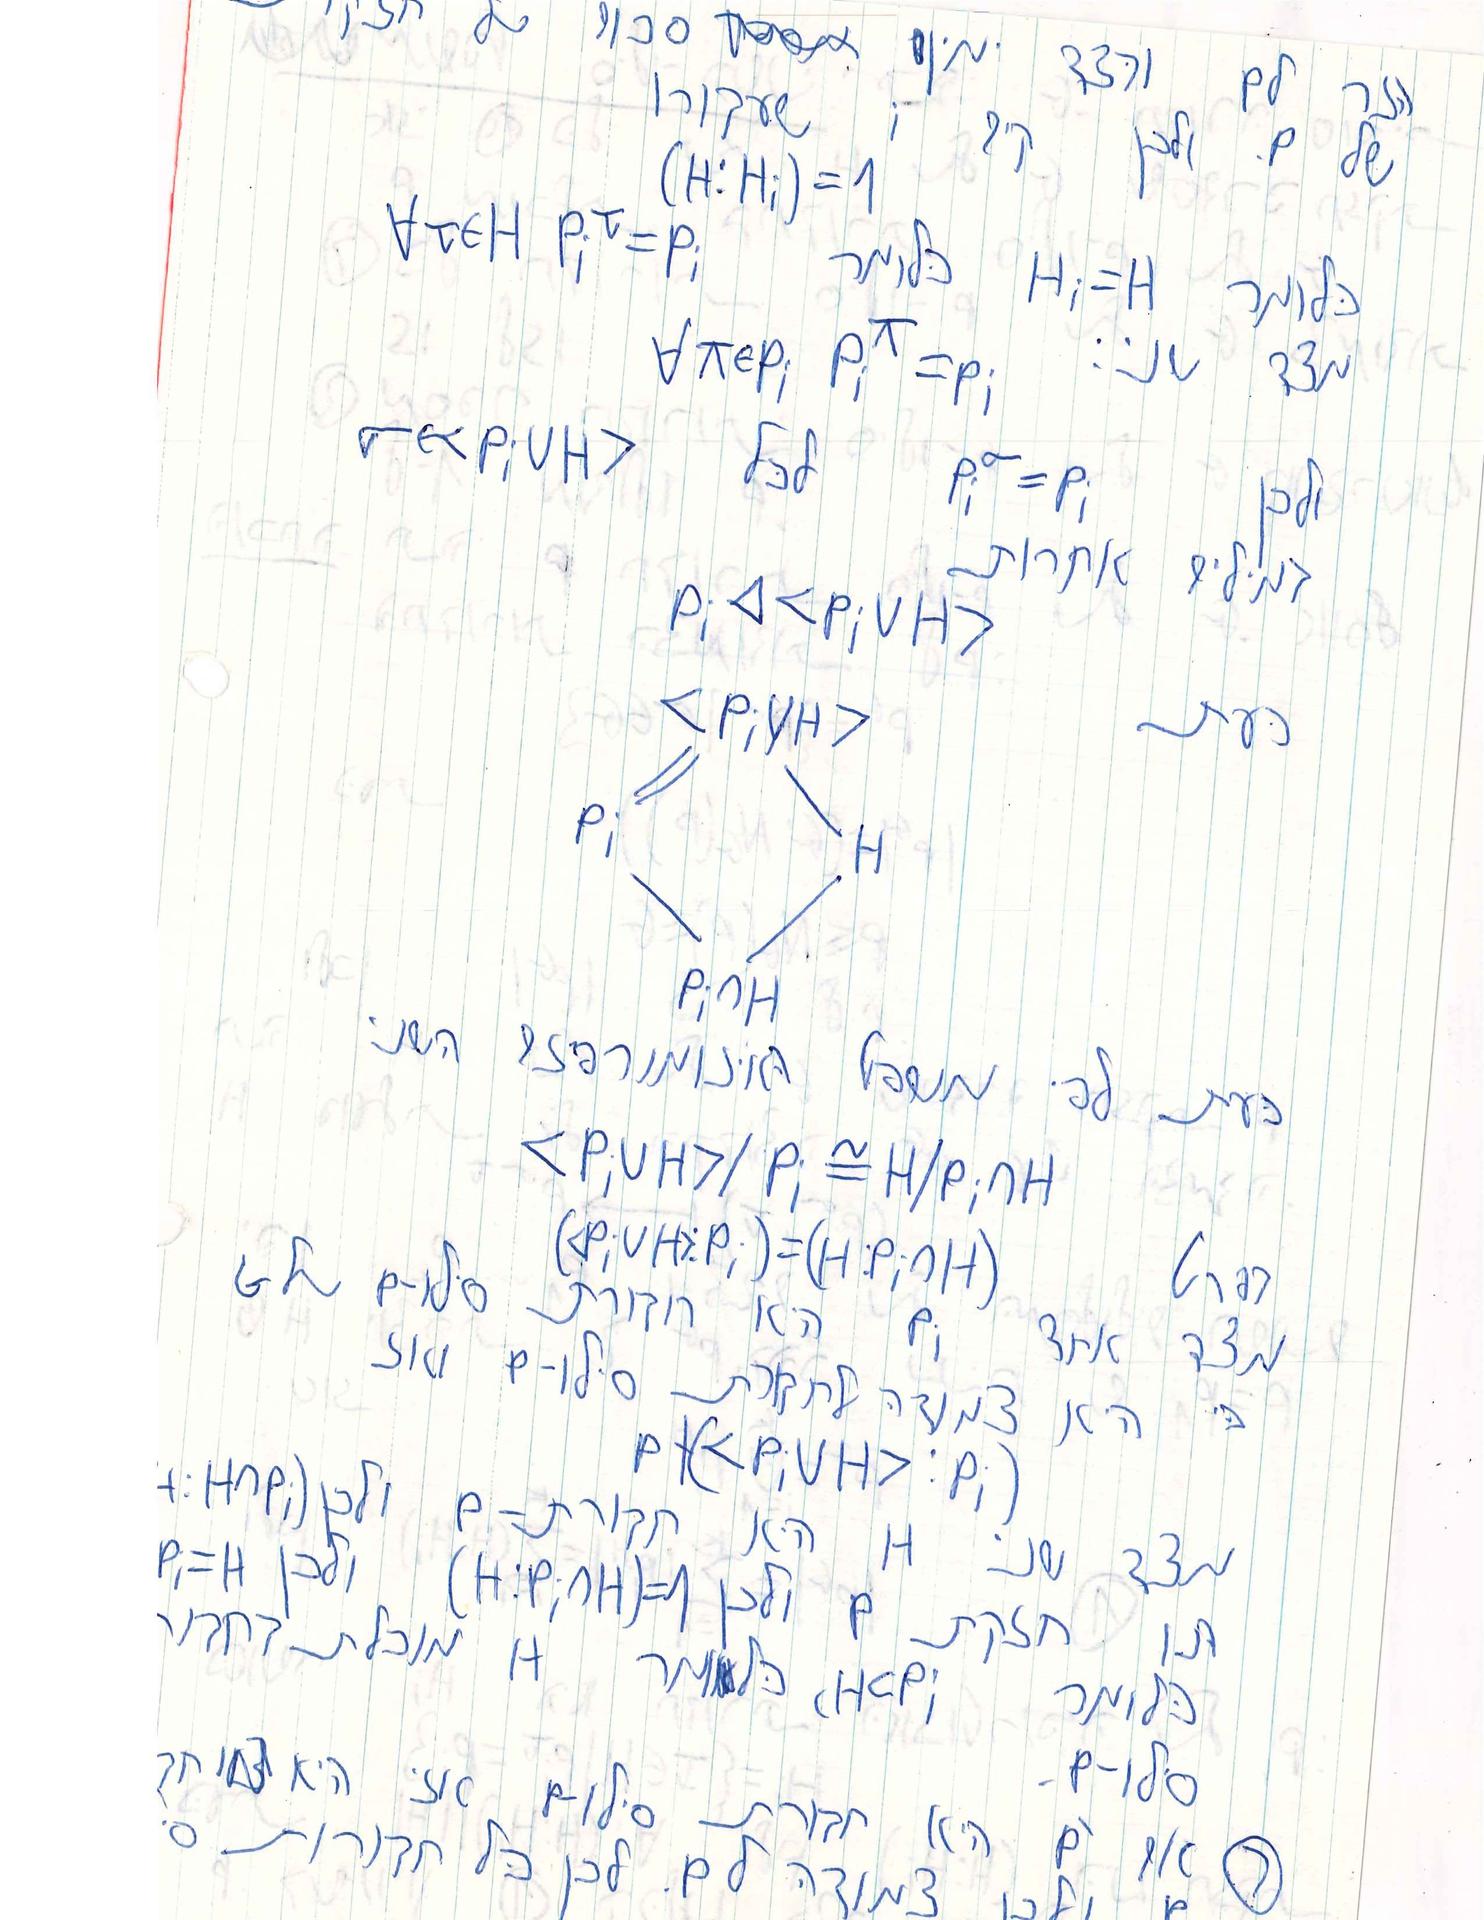 זר לp והצד ימין סכום של חזקו
של p. ולכן קיים i שעבורו
(H:Hᵢ)=1
כלומר Hᵢ=H כלומר ∀τ∈H Pᵢ^τ=Pᵢ
מצד שני: ∀π∈Pᵢ Pᵢ^π=Pᵢ
ולכן Pᵢ^σ=Pᵢ לכל σ∈<Pᵢ∪H>
במילים אחרות
Pᵢ◁<Pᵢ∪H>
כעת <Pᵢ∪H>
Pᵢ H
Pᵢ∩H
כעת לפי משפט האיזומורפיזם השני
<Pᵢ∪H>/Pᵢ≅H/Pᵢ∩H
בפרט (<Pᵢ∪H>:Pᵢ)=(H:Pᵢ∩H)
מצד אחד Pᵢ היא חבורת סילו-p של G
כי היא צמודה לחבורת סילו-p ואז
p∤(<Pᵢ∪H>:Pᵢ)
מצד שני H היא חבורת-p ולכן (H:H∩Pᵢ)
חזקת p ולכן (H:Pᵢ∩H)=1 ולכן Pᵢ=H
כלומר H<Pᵢ, כלומר H מוכלת בחבור
סילו-p.
② אם P היא חבורת סילו-p אזי היא
ולכן צמודה לP. לכן כל חבורות ס